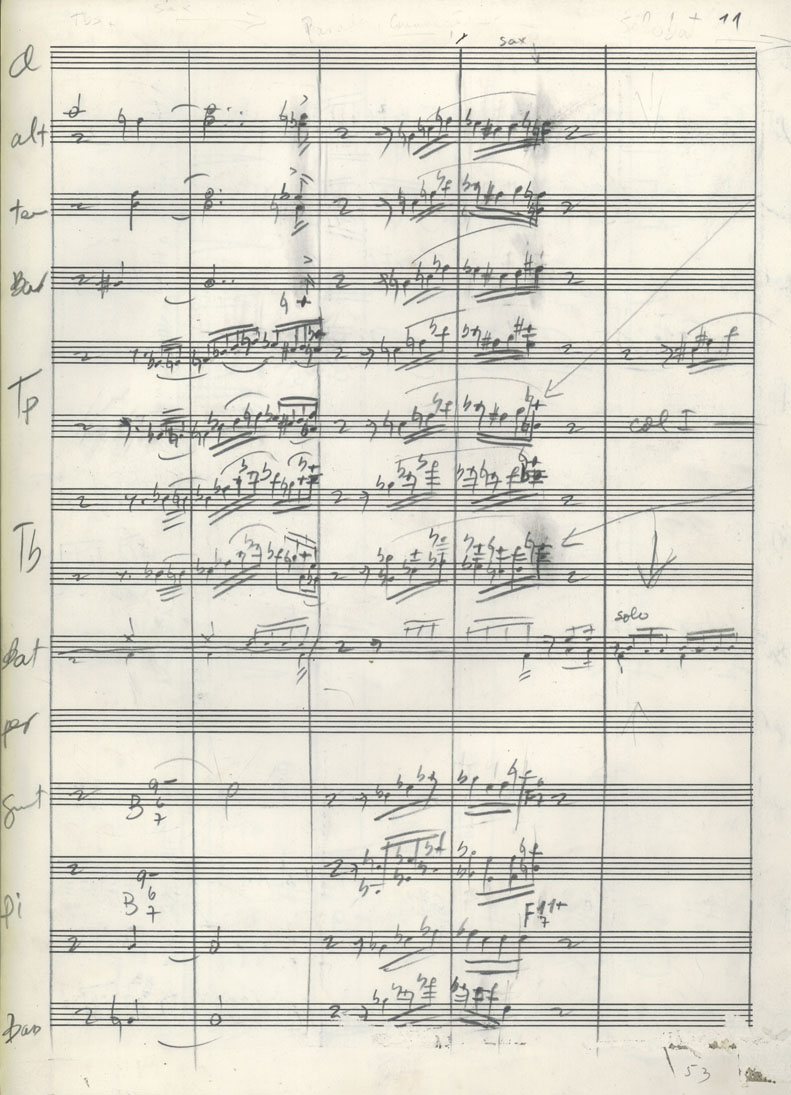 sax
11
sax
cl
alt
ten
Bar
Tp
col I
Tb
solo
Bat
per
Guit
B 9- 6 7
F 6 7
B 9- 6 7
Pi
F 11+ 7
Bas
53